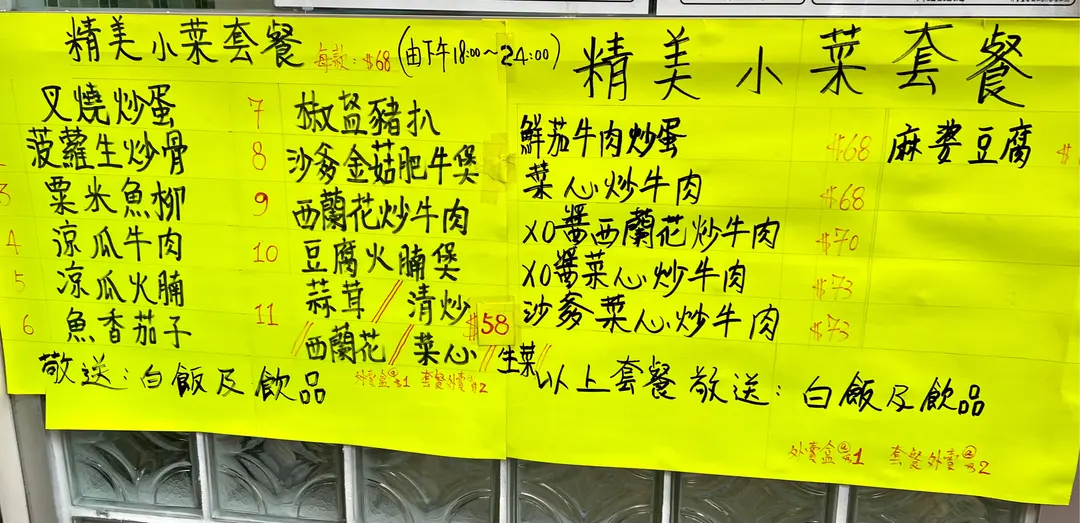 精美小菜套餐 每款:$68 (由下午18:00~24:00)
叉燒炒蛋
菠蘿生炒骨
3 粟米魚柳
4 涼瓜牛肉
5 涼瓜火腩
6 魚香茄子
7 椒盐豬扒
8 沙爹金菇肥牛煲
9 西蘭花炒牛肉
10 豆腐火腩煲
11 蒜茸//清炒 $58
//西蘭花//菜心//生菜//
敬送:白飯及飲品
外賣盒@$1 套餐外賣@$2
精美小菜套餐
鮮茄牛肉炒蛋 $68
菜心炒牛肉 $68
XO醬西蘭花炒牛肉 $70
XO醬菜心炒牛肉 $73
沙爹菜心炒牛肉 $73
麻婆豆腐 $
以上套餐敬送:白飯及飲品
外賣盒@$1 套餐外賣@$2